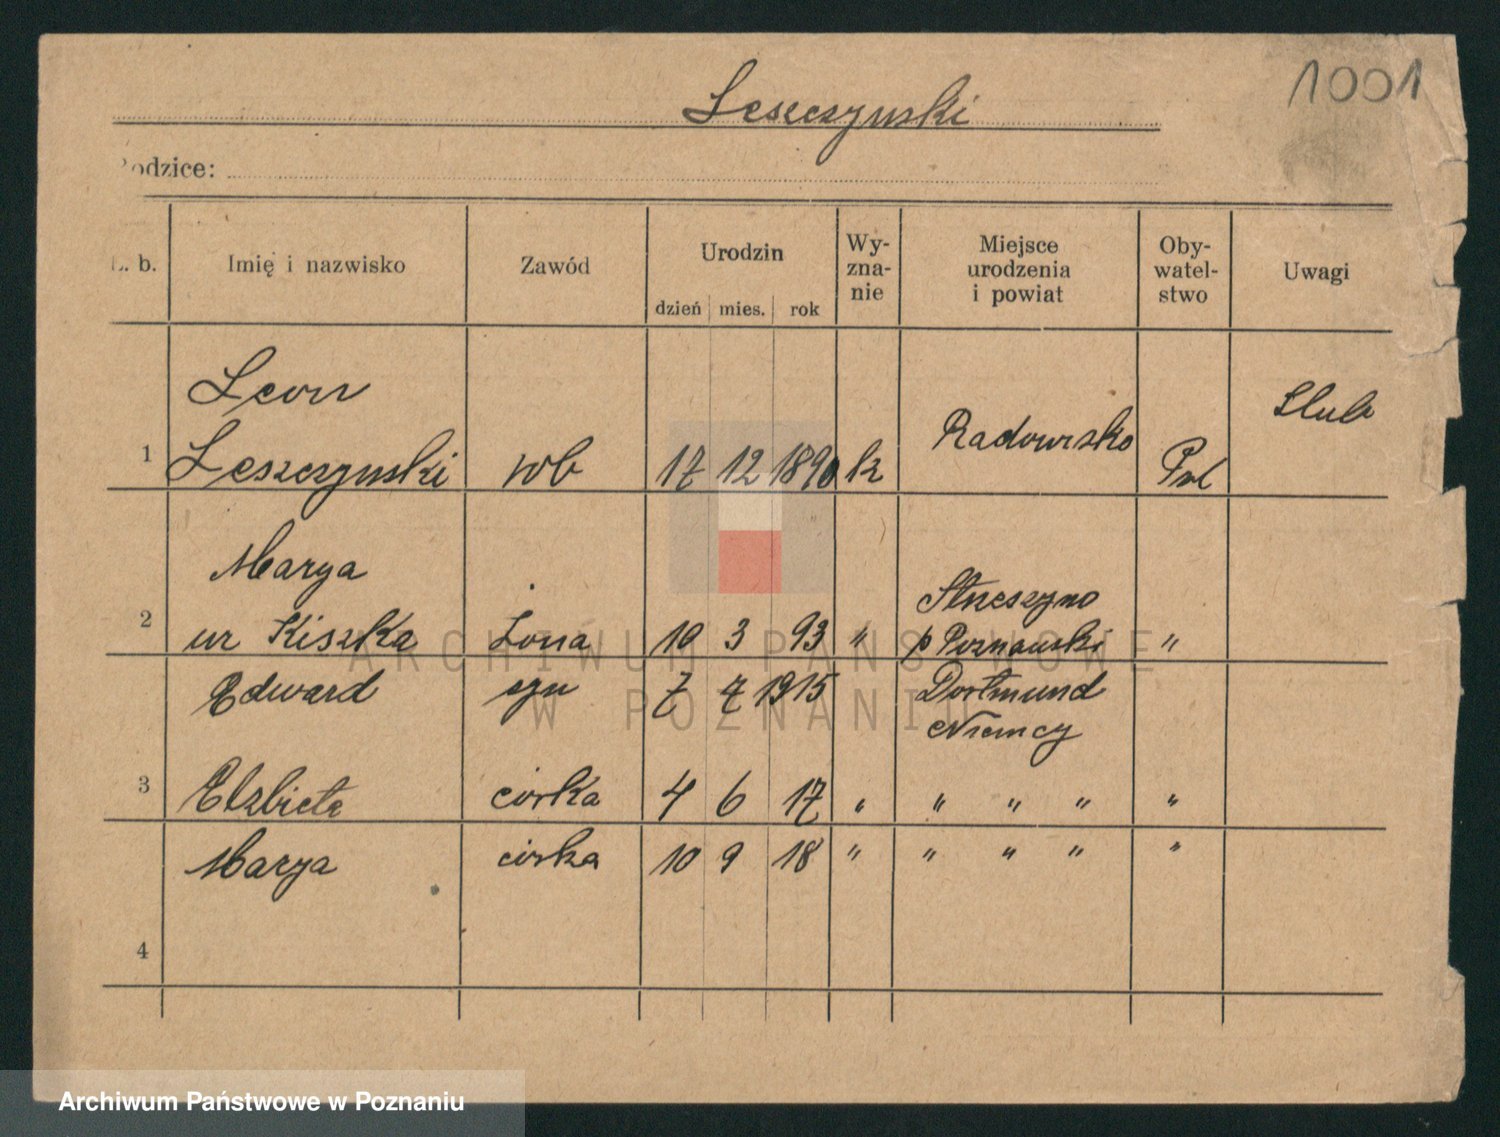 Leszczynski
1001
Rodzice:
L. b. Imię i nazwisko Zawód Urodzin dzień mies. rok Wy-zna-nie Miejsce urodzenia i powiat Oby-watel-stwo Uwagi
Leon
1 Leszczynski rob 17 12 1890 k Radomsko Pol Slub
Marya
Streszyno
2 ur Kiszka Żona 10 3 93 " p Poznanski "
Edward syn 7 7 1915 Dortmund
Niemcy
3 Elzbieta corka 4 6 17 " " " " "
Marya corka 10 9 18 " " " " "
4
ARCHIWUM PAŃSTWOWE
W POZNANIU
Archiwum Państwowe w Poznaniu